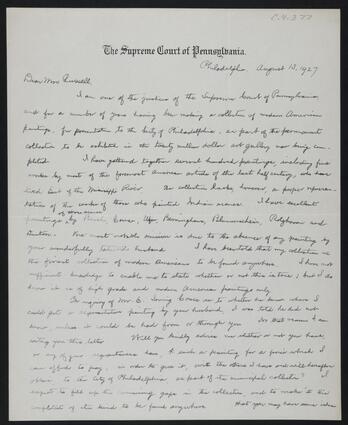 C.4.377
The Supreme Court of Pennsylvania.
Philadelphia, August 13, 1927
Dear Mrs. Russell,
I am one of the justices of the Supreme Court of Pennsylvania,
and for a number of years have been making a collection of modern American
paintings, for presentation to the City of Philadelphia, as part of the permanent
collection to be exhibited in the twenty million dollar art gallery now being com-
pleted. I have gathered together several hundred paintings, including fine
works by most of the foremost American artists of the last half century, who have
lived East of the Mississippi River. The collection lacks, however, a proper represen-
tation of the works of those who painted Indian scenes. I have excellent
paintings by Couse, Ufer, Berninghaus, Blumenschein, and
The most notable omission is due to the absence of any painting by
your wonderfully talented husband. I have heard it said my collection is
the finest collection of modern Americans to be found anywhere. I have not
sufficient knowledge to enable me to state whether or not this is true; but I do
know it is of high grade and modern American paintings only.
Inquiry of Mr. E. Irving Couse as to whether he knew where I
could get a representative painting by your husband, I was told he did not
know, unless it could be had from or through you. For that reason I am
writing you this letter. Will you kindly advise me whether or not you have,
or any of your representatives has, such a painting for a price which I
can afford to pay, in order to give it, with the others I have and will hereafter
obtain to the City of Philadelphia as part of its municipal collection? I
expect to fill up the remaining gaps in the collection, and to make it the
completest of its kind to be found anywhere. That you may have some idea